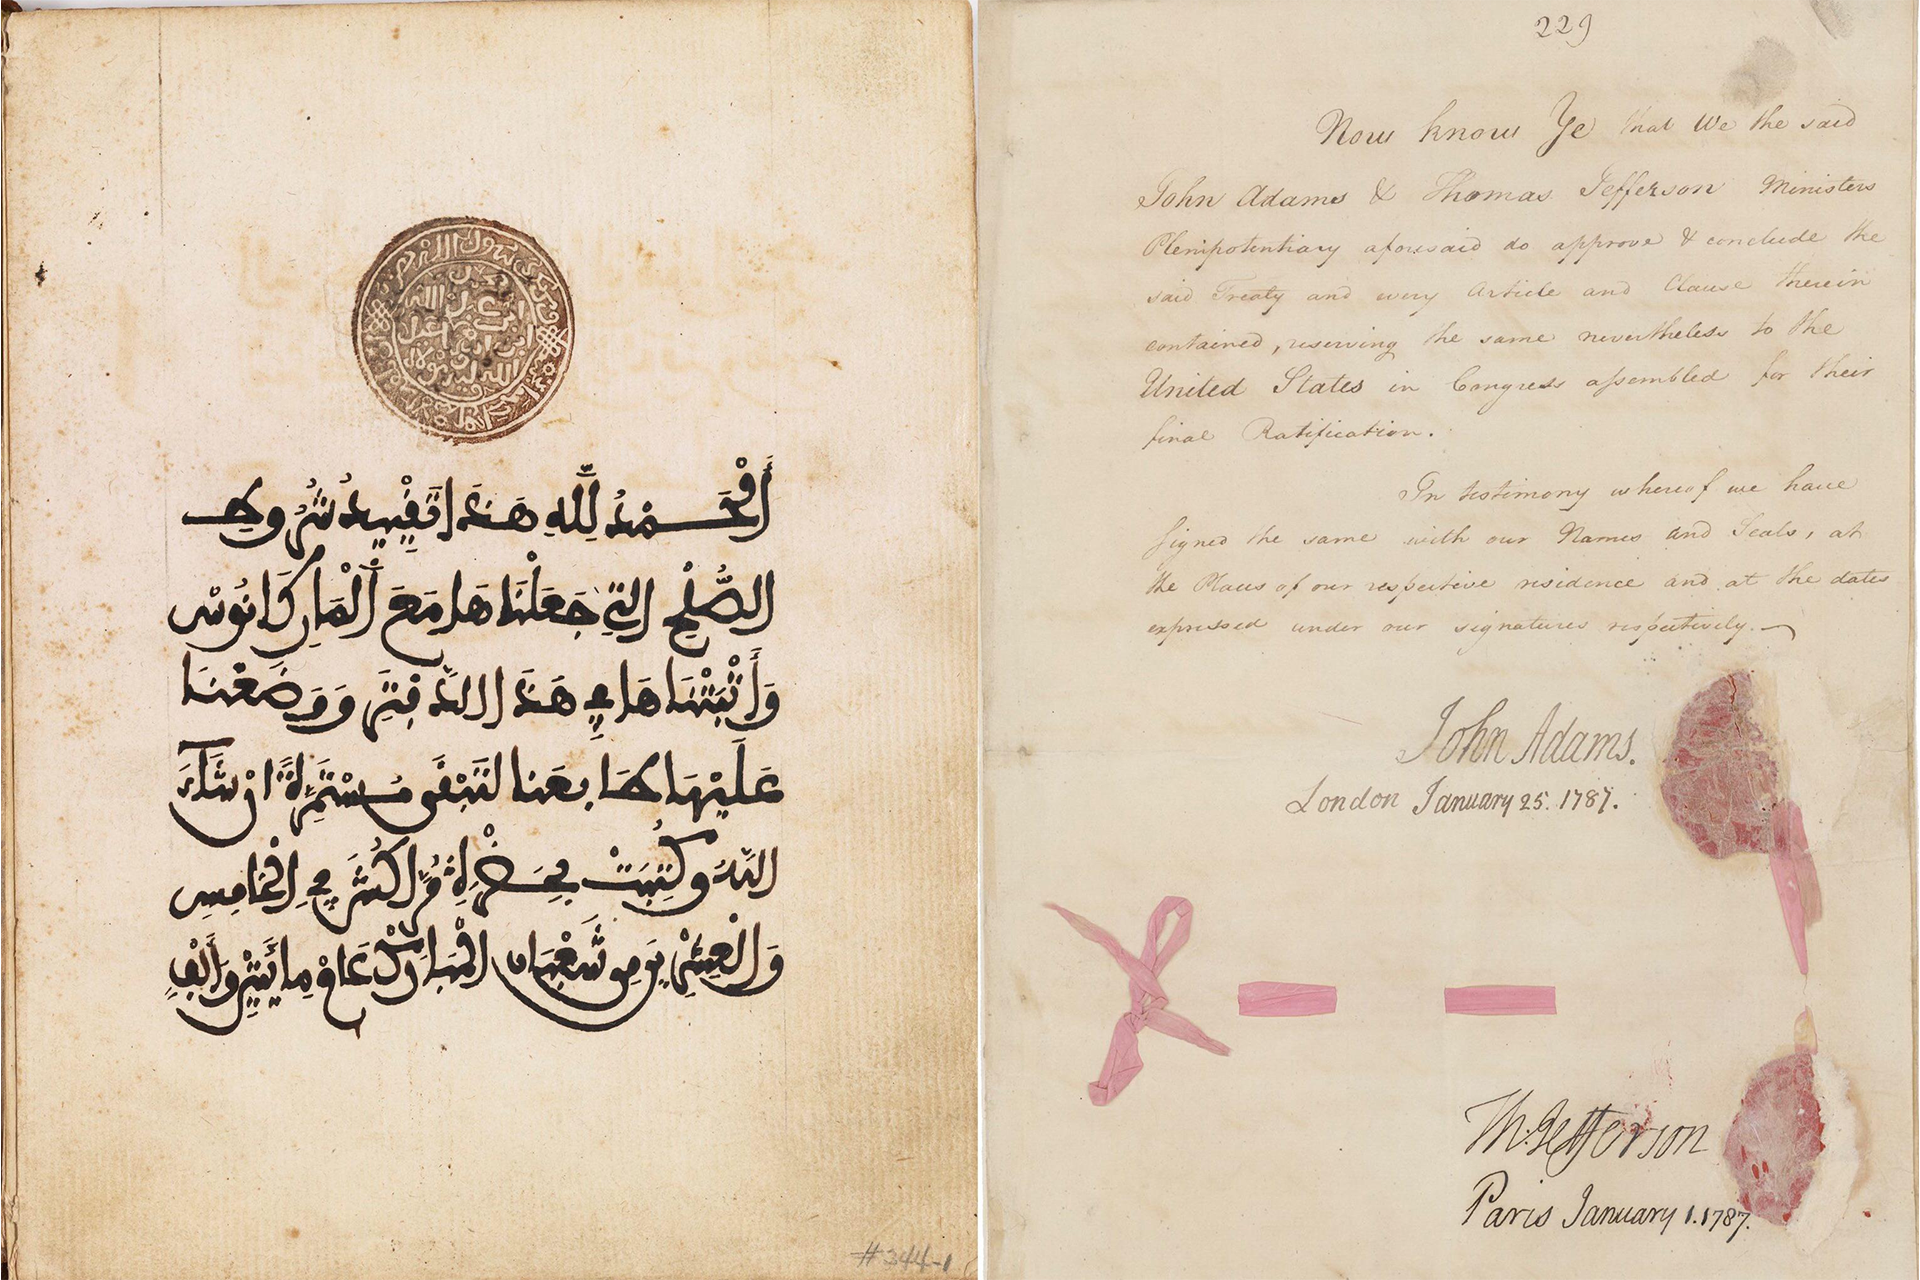 229
أَلْحَمْدُ لِلَّهِ هَذَا تَقْيِيدُ شُرُوطِ
الصُّلْحِ التِي جَعَلْنَاهَا مَعَ أَلْمَارِكَانُوسْ
وَأَثْبَتْنَاهَا فِي هَذَا الدَّفْتَرِ وَوَضَعْنَا
عَلَيْهَا طَابِعَنَا لِتَبْقَى مُسْتَمِرَّةً انْ شَاءَ
اللَّهُ وَكُتِبَتْ بِحَضْرَةِ مُرَّاكُشَ فِي الْخَامِسِ
وَالْعِشْرِينَ مِنْ شَعْبَانَ الْمُبَارَكْ عَامْ مِائَتَيْنِ وَأَلْفٍ
#344-1
Now know Ye that We the said
John Adams & Thomas Jefferson Ministers
Plenipotentiary aforesaid do approve & conclude the
said Treaty and every Article and Clause therein
contained, reserving the same nevertheless to the
United States in Congress assembled for their
final Ratification.
In testimony whereof we have
signed the same with our Names and Seals, at
the Places of our respective residence and at the dates
expressed under our signatures respectively.
John Adams.
London January 25. 1787.
Th: Jefferson
Paris January 1. 1787.